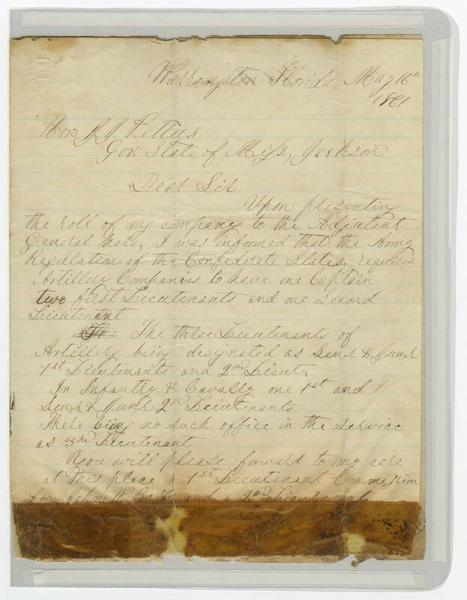 Warrington Florida, May 16th
1861
Hon. J. J. Pettus
Gov. State of Miss, Jackson
Dear Sir
Upon presenting
the roll of my company to the Adjutant
General here, I was informed that the Army
Regulation of the Confederate States, requires
Artillery Companies to have one Captain
two first Lieutenants and one Second
Lieutenant
The three Lieutenants of
Artillery being designated as Senr & Junr
1st Lieutenants and 2nd Lieut.
In Infantry & Cavalry one 1st and
Senr & Junr 2nd Lieutenants
There being no such office in the service
as 3rd Lieutenant
You will please forward to my care
at this place a 1st Lieutenant Commission
for John